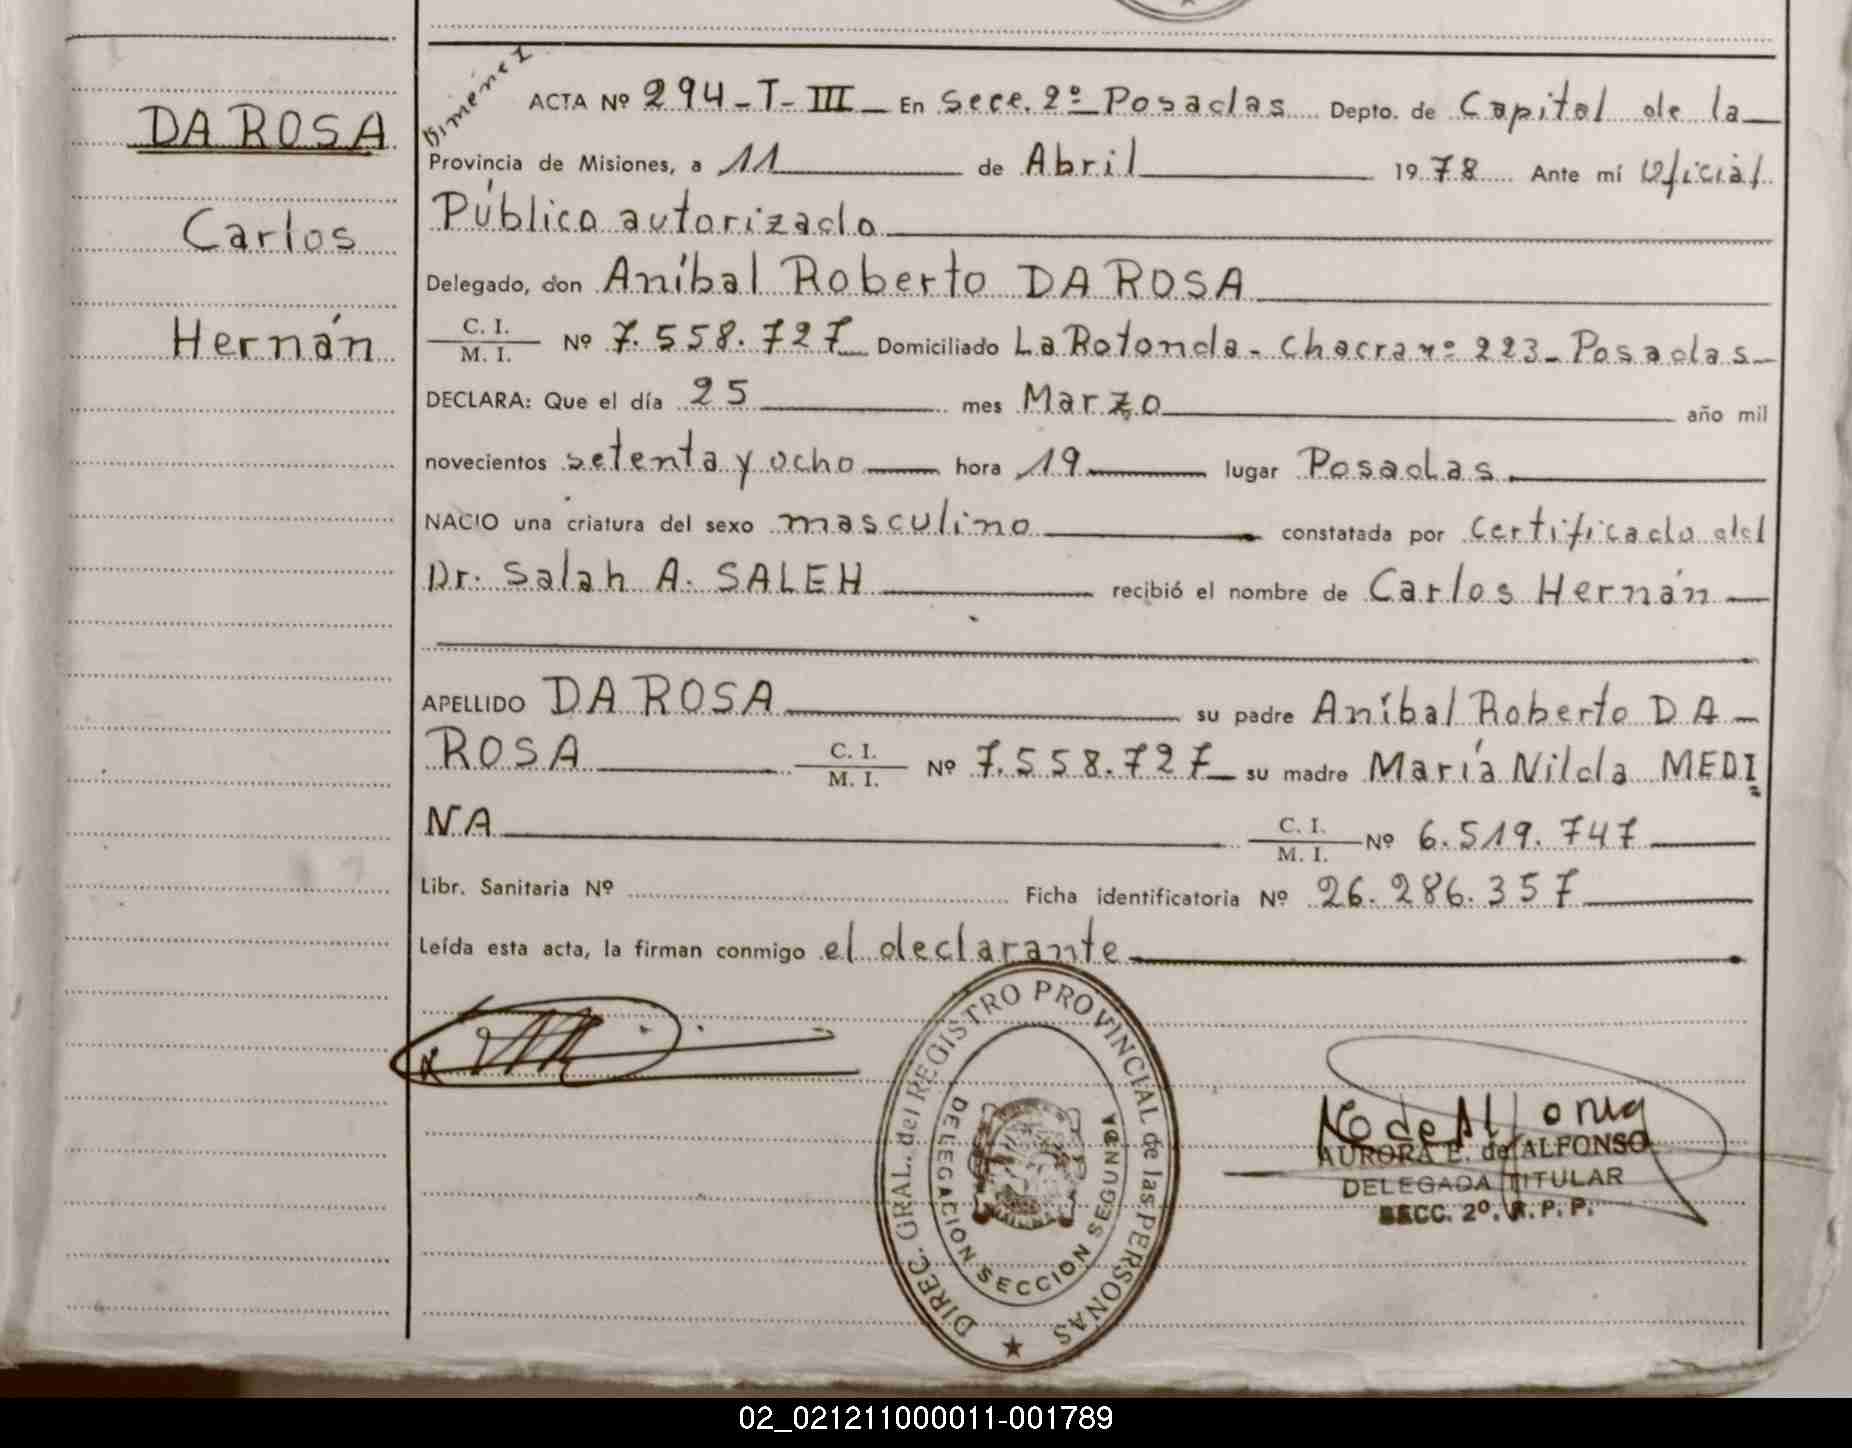 DA ROSA
Carlos
Hernán
ACTA Nº 294-T-III- En Secc. 2º-Posadas Depto. de Capital de la
Provincia de Misiones, a 11 de Abril 1978 Ante mí Oficial
Público autorizado
Delegado, don Aníbal Roberto DA ROSA
C. I. / M. I. Nº 7.558.727 Domiciliado La Rotonda - Chacra nº 223 - Posadas
DECLARA: Que el día 25 mes Marzo año mil
novecientos setenta y ocho hora 19 lugar Posadas
NACIO una criatura del sexo masculino constatada por certificado del
Dr. Salah A. SALEH recibió el nombre de Carlos Hernán
APELLIDO DA ROSA su padre Aníbal Roberto DA
ROSA C. I. / M. I. Nº 7.558.727 su madre María Nilda MEDI
NA C. I. / M. I. Nº 6.519.747
Libr. Sanitaria Nº Ficha identificatoria Nº 26.286.357
Leída esta acta, la firman conmigo el declarante
DIREC. GRAL. del REGISTRO PROVINCIAL de las PERSONAS
DELEGACION SECCION SEGUNDA
AURORA E. de ALFONSO
DELEGADA TITULAR
SECC. 2º. R. P. P.
02_021211000011-001789